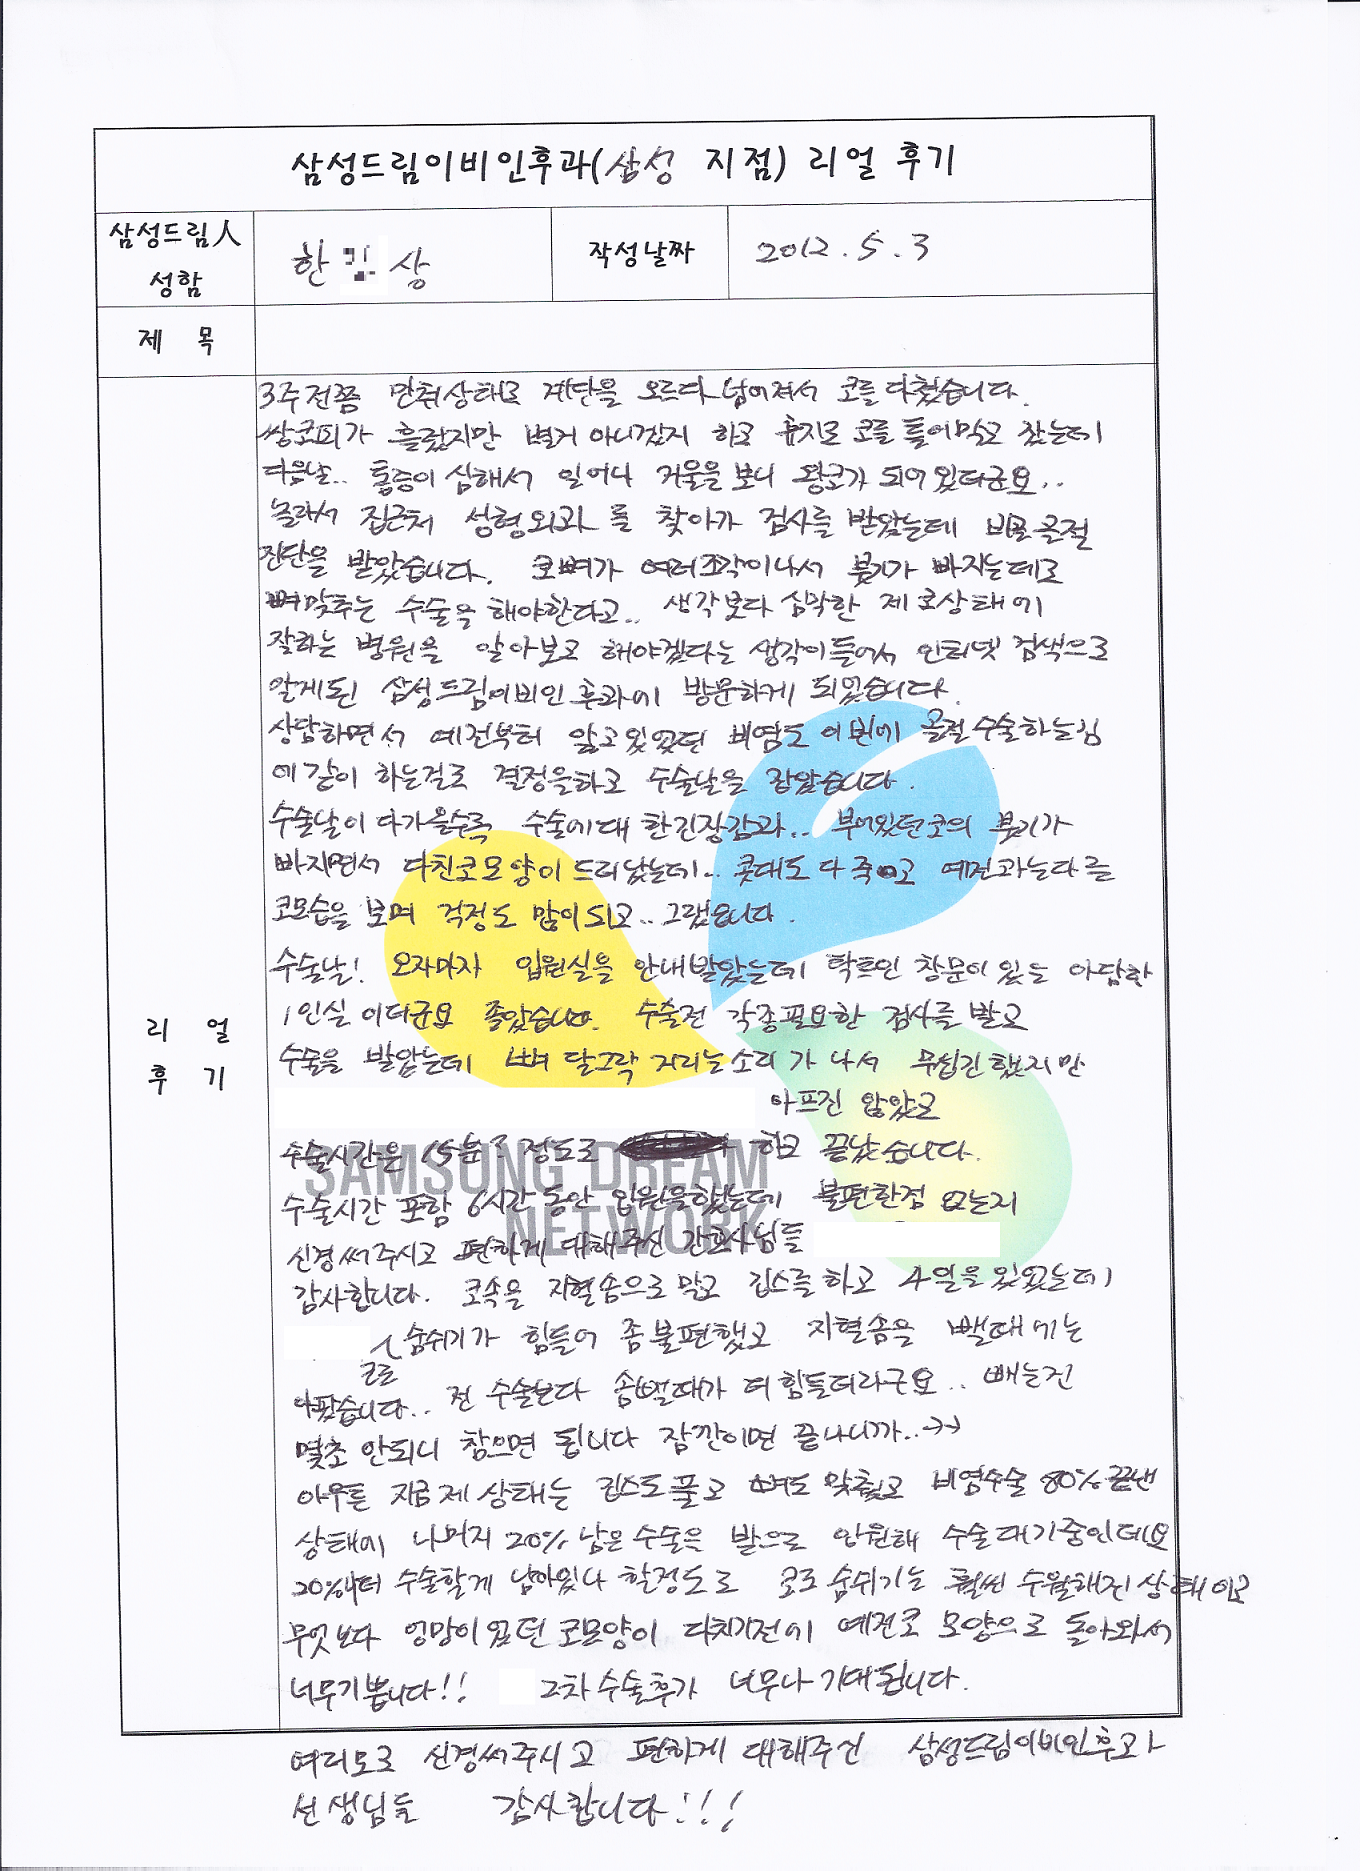 삼성드림이비인후과(삼성 지점) 리얼 후기
삼성드림人
성함
한 상
작성날짜
2012. 5. 3
제 목
리 얼
후 기
3주전쯤 만취상태로 계단을 오르다 넘어져서 코를 다쳤습니다.
쌍코피가 흘렀지만 별거 아니겠지 하고 휴지로 코를 틀어막고 잤는데
다음날.. 통증이 심해서 일어나 거울을 보니 왕코가 되어 있더군요..
놀라서 집근처 성형외과를 찾아가 검사를 받았는데 비골골절
진단을 받았습니다. 코뼈가 여러조각이나서 붓기가 빠지는데로
뼈맞추는 수술을 해야한다고.. 생각보다 심각한 제 코상태에
잘하는 병원을 알아보고 해야겠다는 생각이들어서 인터넷 검색으로
알게된 삼성드림이비인후과에 방문하게 되었습니다.
상담하면서 예전부터 앓고있었던 비염도 이번에 골절수술하는김
에 같이 하는걸로 결정을하고 수술날을 잡았습니다.
수술날이 다가올수록 수술에대한긴장감과.. 부어있던코의 붓기가
빠지면서 다친코모양이 드러났는데.. 콧대도 다죽고 예전과는다른
코모습을 보며 걱정도 많이되고.. 그랬습니다.
수술날! 오자마자 입원실을 안내받았는데 탁트인 창문이있는 아담한
1인실 이더군요 좋았습니다. 수술전 각종필요한 검사를 받고
수술을 받았는데 뼈 달그락 거리는소리가 나서 무섭긴했지만
아프진 않았고
수술시간은 15분 정도로 하고 끝났습니다.
수술시간 포함 6시간동안 입원을했는데 불편한점 없는지
신경써주시고 편하게 대해주신 간호사님들
감사합니다. 코속을 지혈솜으로 막고 깁스를하고 4일을있었는데
코로 숨쉬기가 힘들어 좀불편했고 지혈솜을 뺄때에는
아팠습니다.. 전 수술보다 솜뺄때가 더힘들더라구요.. 빼는건
몇초 안되니 참으면 됩니다 잠깐이면 끝나니까..ㅋㅋ
아무튼 지금제상태는 깁스도풀고 뼈도 맞췄고 비염수술 80%끝낸
상태에 나머지 20% 남은수술을 받으로 입원해 수술대기중인데요
20%나더 수술할게 남아있나 할정도로 코로 숨쉬기는 훨씬 수월해진 상태이고
무엇보다 엉망이었던 코모양이 다치기전에 예전코 모양으로 돌아와서
너무기쁩니다!! 2차수술후가 너무나 기대됩니다.
여러모로 신경써주시고 편하게 대해주신 삼성드림이비인후과
선생님들 감사합니다!!!
SAMSUNG DREAM
NETWORK